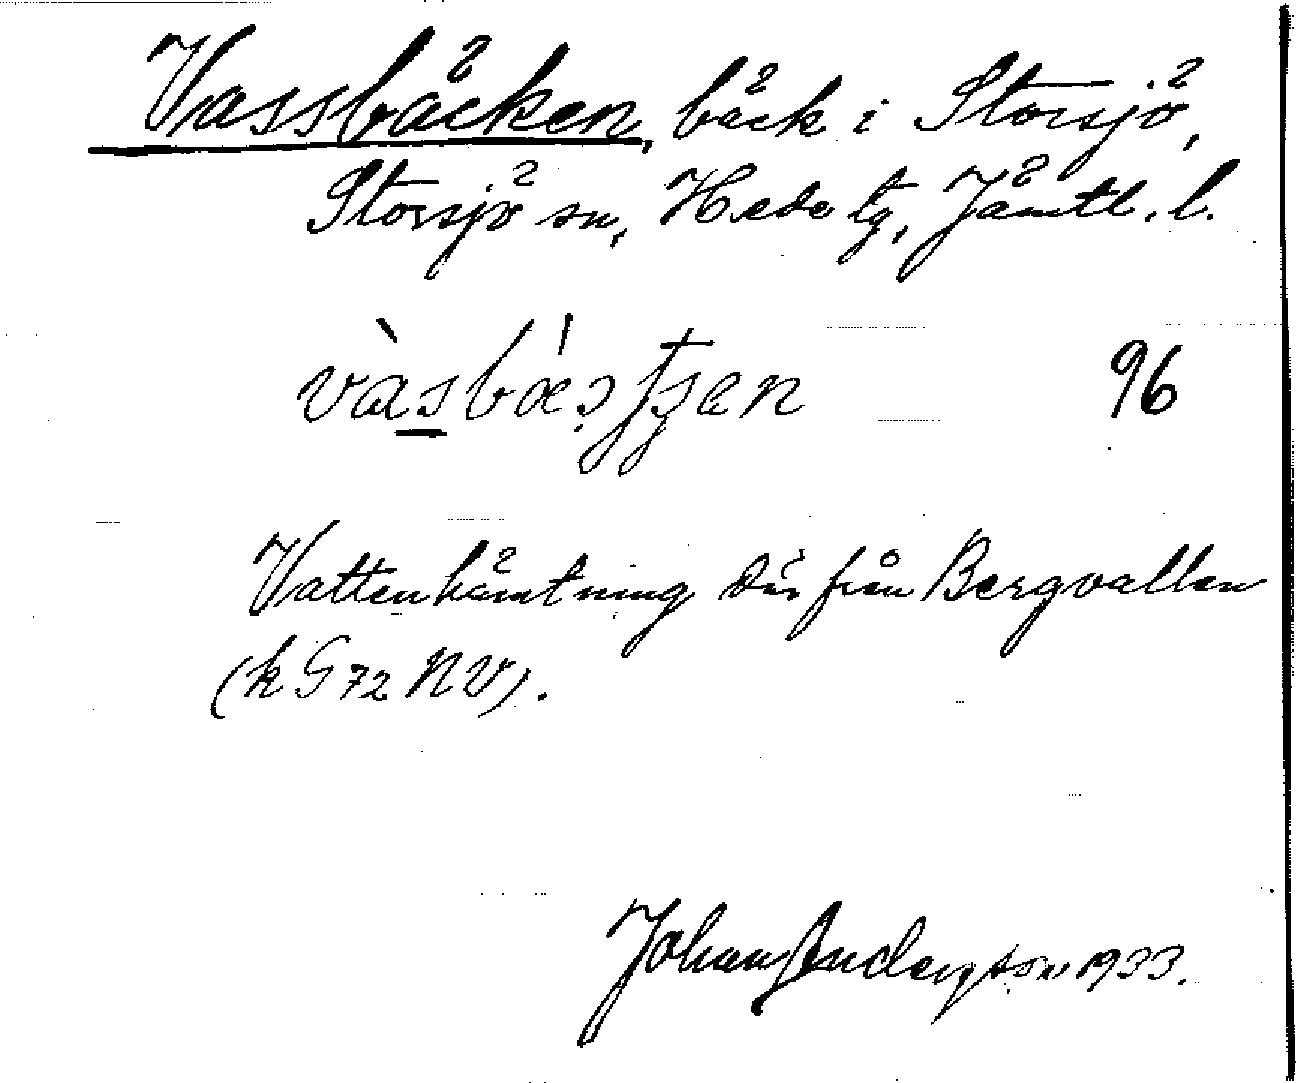 Vassbäcken, bäck i Storsjö,
Storsjö sn, Hede tg, Jämtl. l.
96
Vattenhämtning där från Bergvallen
(k G 72 NV).
Johan Anderson 1933.